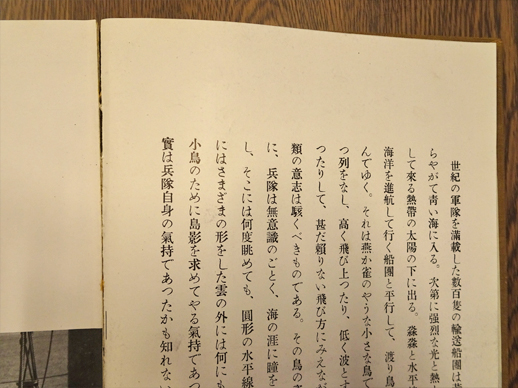 世紀の軍隊を滿載した數百隻の輸送船團は
らやがて靑い海に入る。次第に強烈な光と熱
して來る熱帶の太陽の下に出る。淼淼と水平
海洋を進航して行く船團と平行して、渡り鳥
んでゆく。それは燕か雀のやうな小さな鳥で
つ列をなし、高く飛び上つたり、低く波とす
つたりして、甚だ賴りない飛び方にみえなが
類の意志は駭くべきものである。その鳥の
に、兵隊は無意識のごとく、海の涯に瞳を
し、そこには何度眺めても、圓形の水平線
にはさまざまの形をした雲の外には何にも
小鳥のために島影を求めてやる氣持であつ
實は兵隊自身の氣持であつたかも知れない